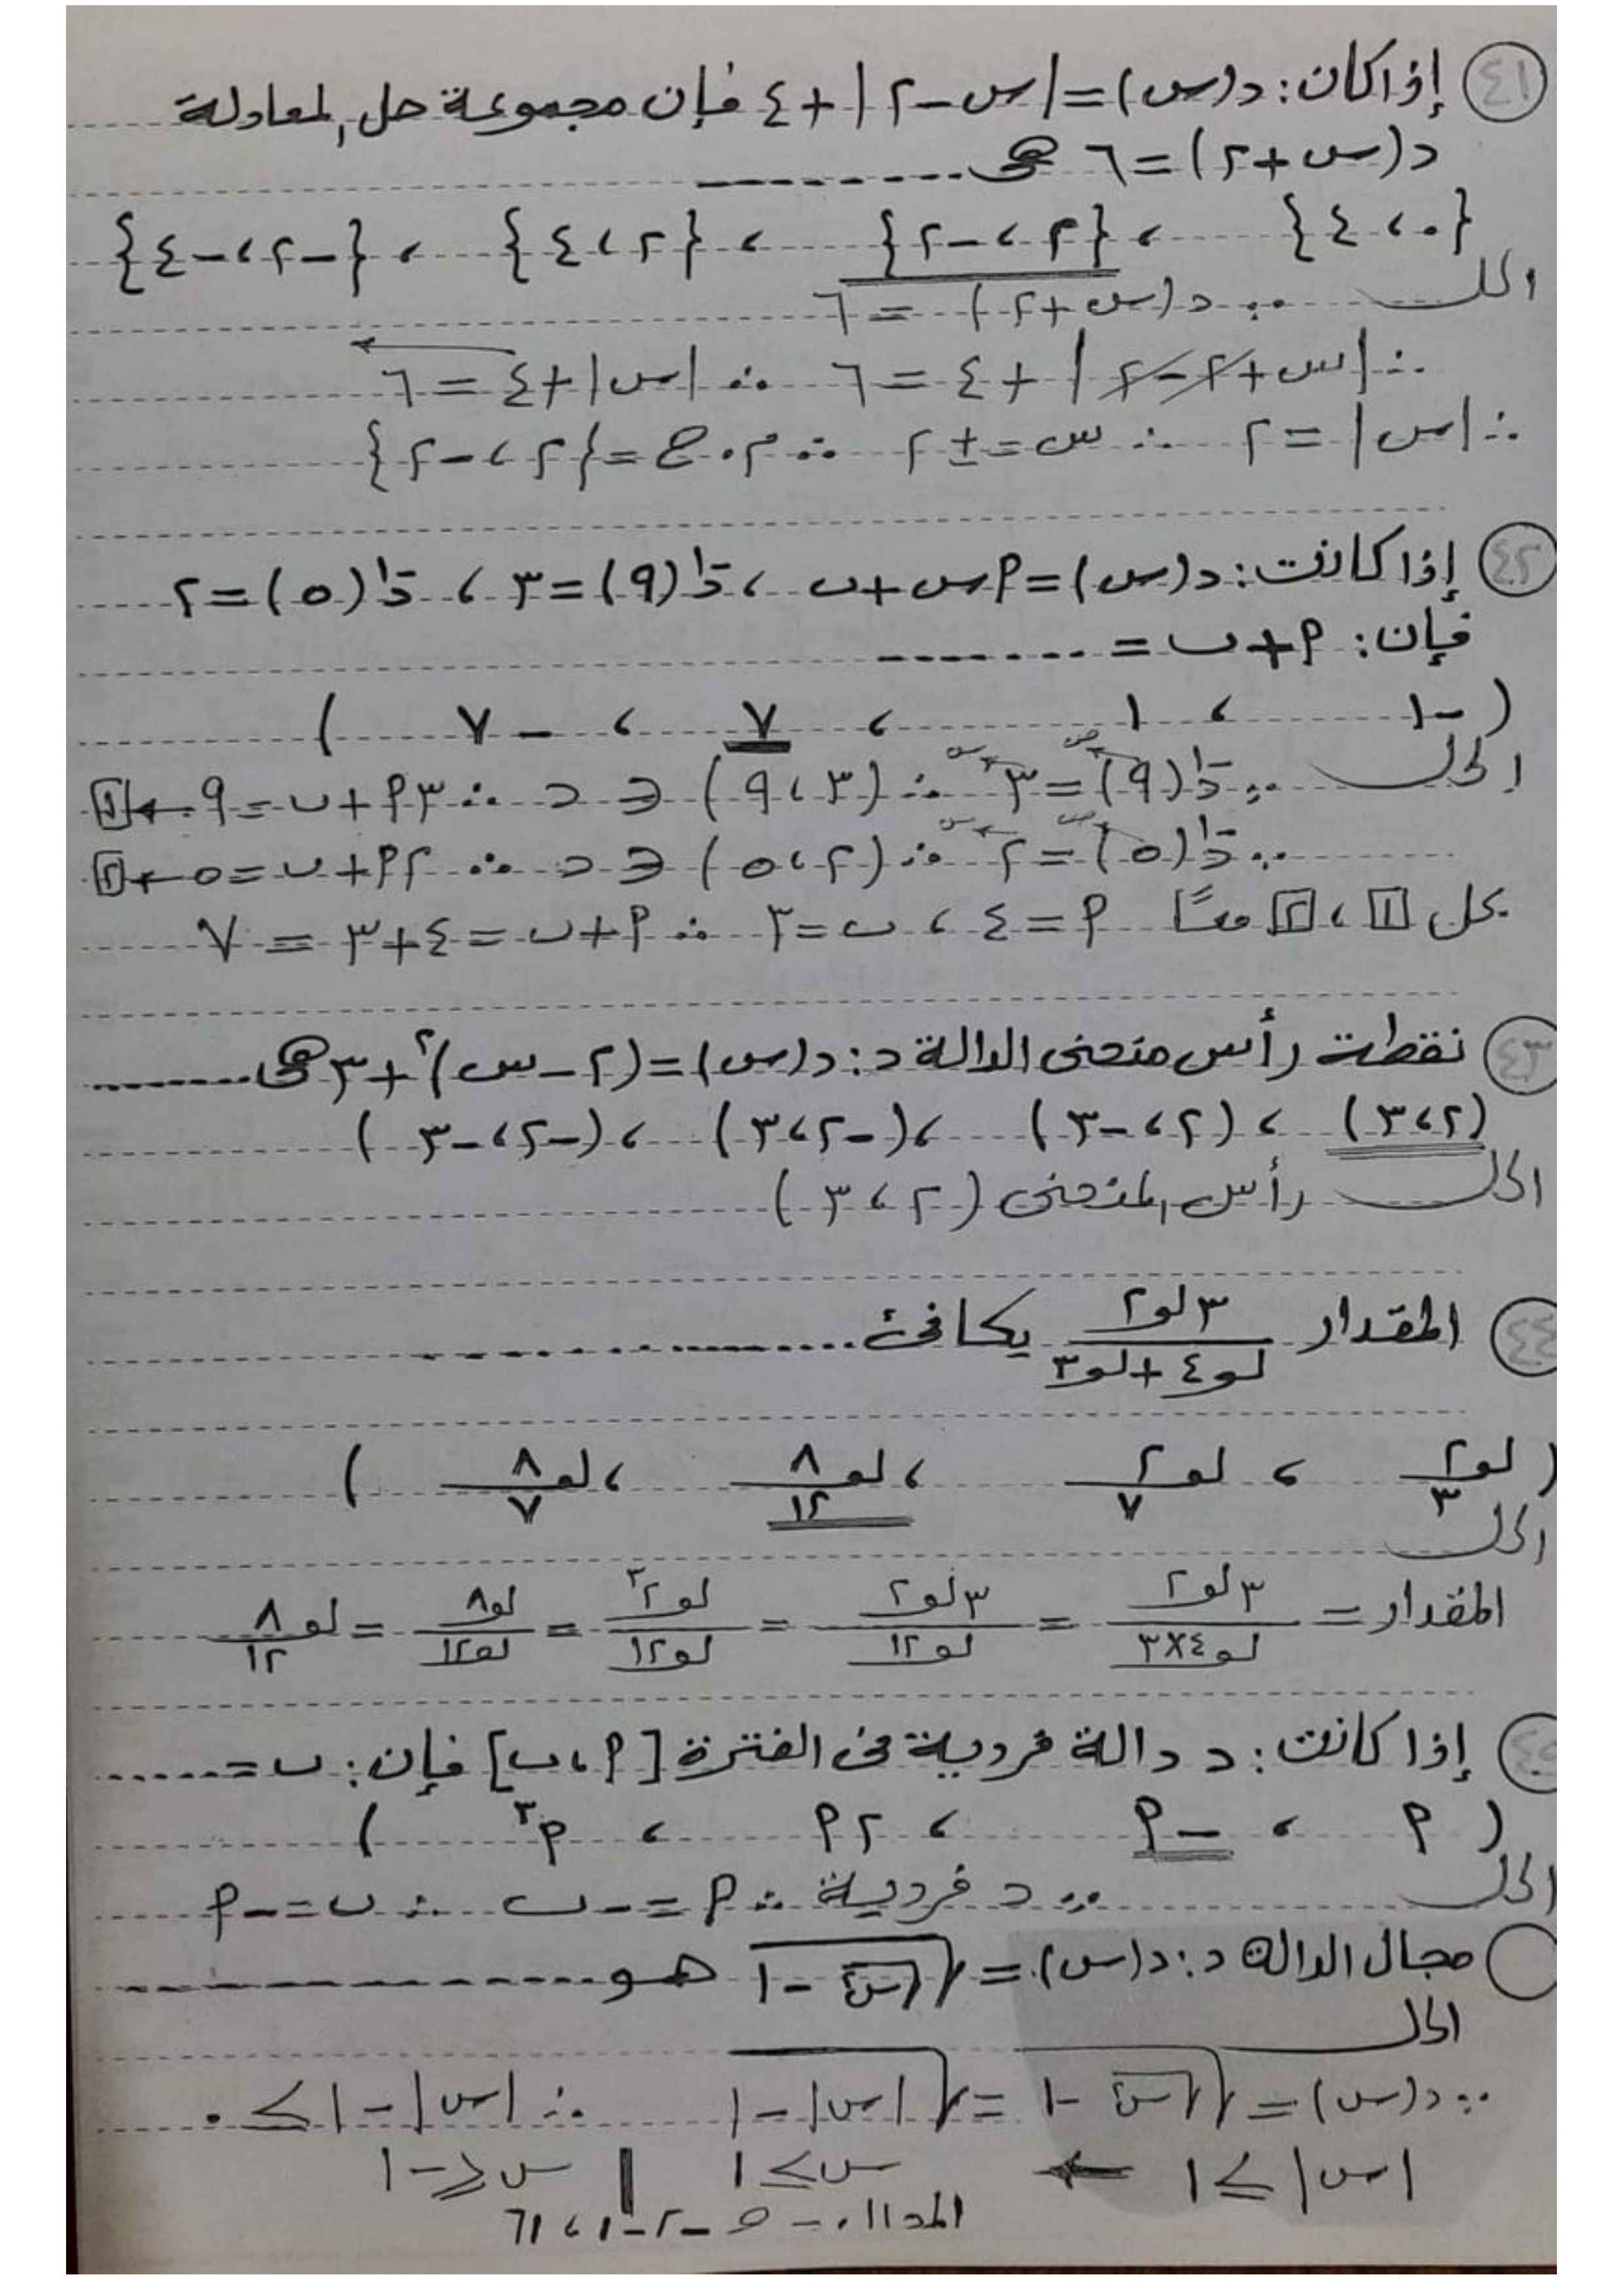 ٤١ إذا كان: د(س) = |س - ٢| + ٤ فإن مجموعة حل المعادلة
د(س + ٢) = ٦ هى ........
{٠، ٤} ، {٢، -٢} ، {٢، ٤} ، {-٢، -٤}
الحل ∵ د(س + ٢) = ٦
∴ |س + ٢ - ٢| + ٤ = ٦ ∴ |س| + ٤ = ٦
∴ |س| = ٢ ∴ س = ± ٢ ∴ م.ح = {٢، -٢}
٤٢ إذا كانت: د(س) = ٩س + ب ، د⁻¹(٩) = ٣ ، د⁻¹(٥) = ٢
فإن: ٩ + ب = .......
( -١ ، ١ ، ٧ ، -٧ )
الحل ∵ د⁻¹(٩) = ٣ ∴ (٣، ٩) ∈ د ∴ ٣٩ + ب = ٩ ← [١]
∵ د⁻¹(٥) = ٢ ∴ (٢، ٥) ∈ د ∴ ٢٩ + ب = ٥ ← [٢]
بحل [١]، [٢] معاً ٩ = ٤ ، ب = ٣ ∴ ٩ + ب = ٤ + ٣ = ٧
٤٣ نقطة رأس منحنى الدالة د: د(س) = (٢ - س)² + ٣ هى ........
(٢، ٣) ، (٢، -٣) ، (-٢، ٣) ، (-٢، -٣)
الحل رأس المنحنى (٢، ٣)
٤٤ المقدار ٣لو٢ / لو٤ + لو٣ يكافئ ........
( لو٢/٣ ، لو ٢/٧ ، لو ٨/١٢ ، لو ٨/٧ )
الحل
المقدار = ٣لو٢ / لو٤×٣ = ٣لو٢ / لو١٢ = لو٢³ / لو١٢ = لو٨ / لو١٢ = لو ٨/١٢
٤٥ إذا كانت: د دالة فردية فى الفترة [٩، ب] فإن: ب = ......
( ٩ ، -٩ ، ٢٩ ، ٩³ )
الحل ∵ د فردية ∴ ٩ = -ب ∴ ب = -٩
مجال الدالة د: د(س) = √(√س² - ١) هو ........
الحل
∵ د(س) = √(√س² - ١) = √(|س| - ١) ∴ |س| - ١ ≥ ٠
|س| ≥ ١ ← س ≥ ١ | س ≤ -١